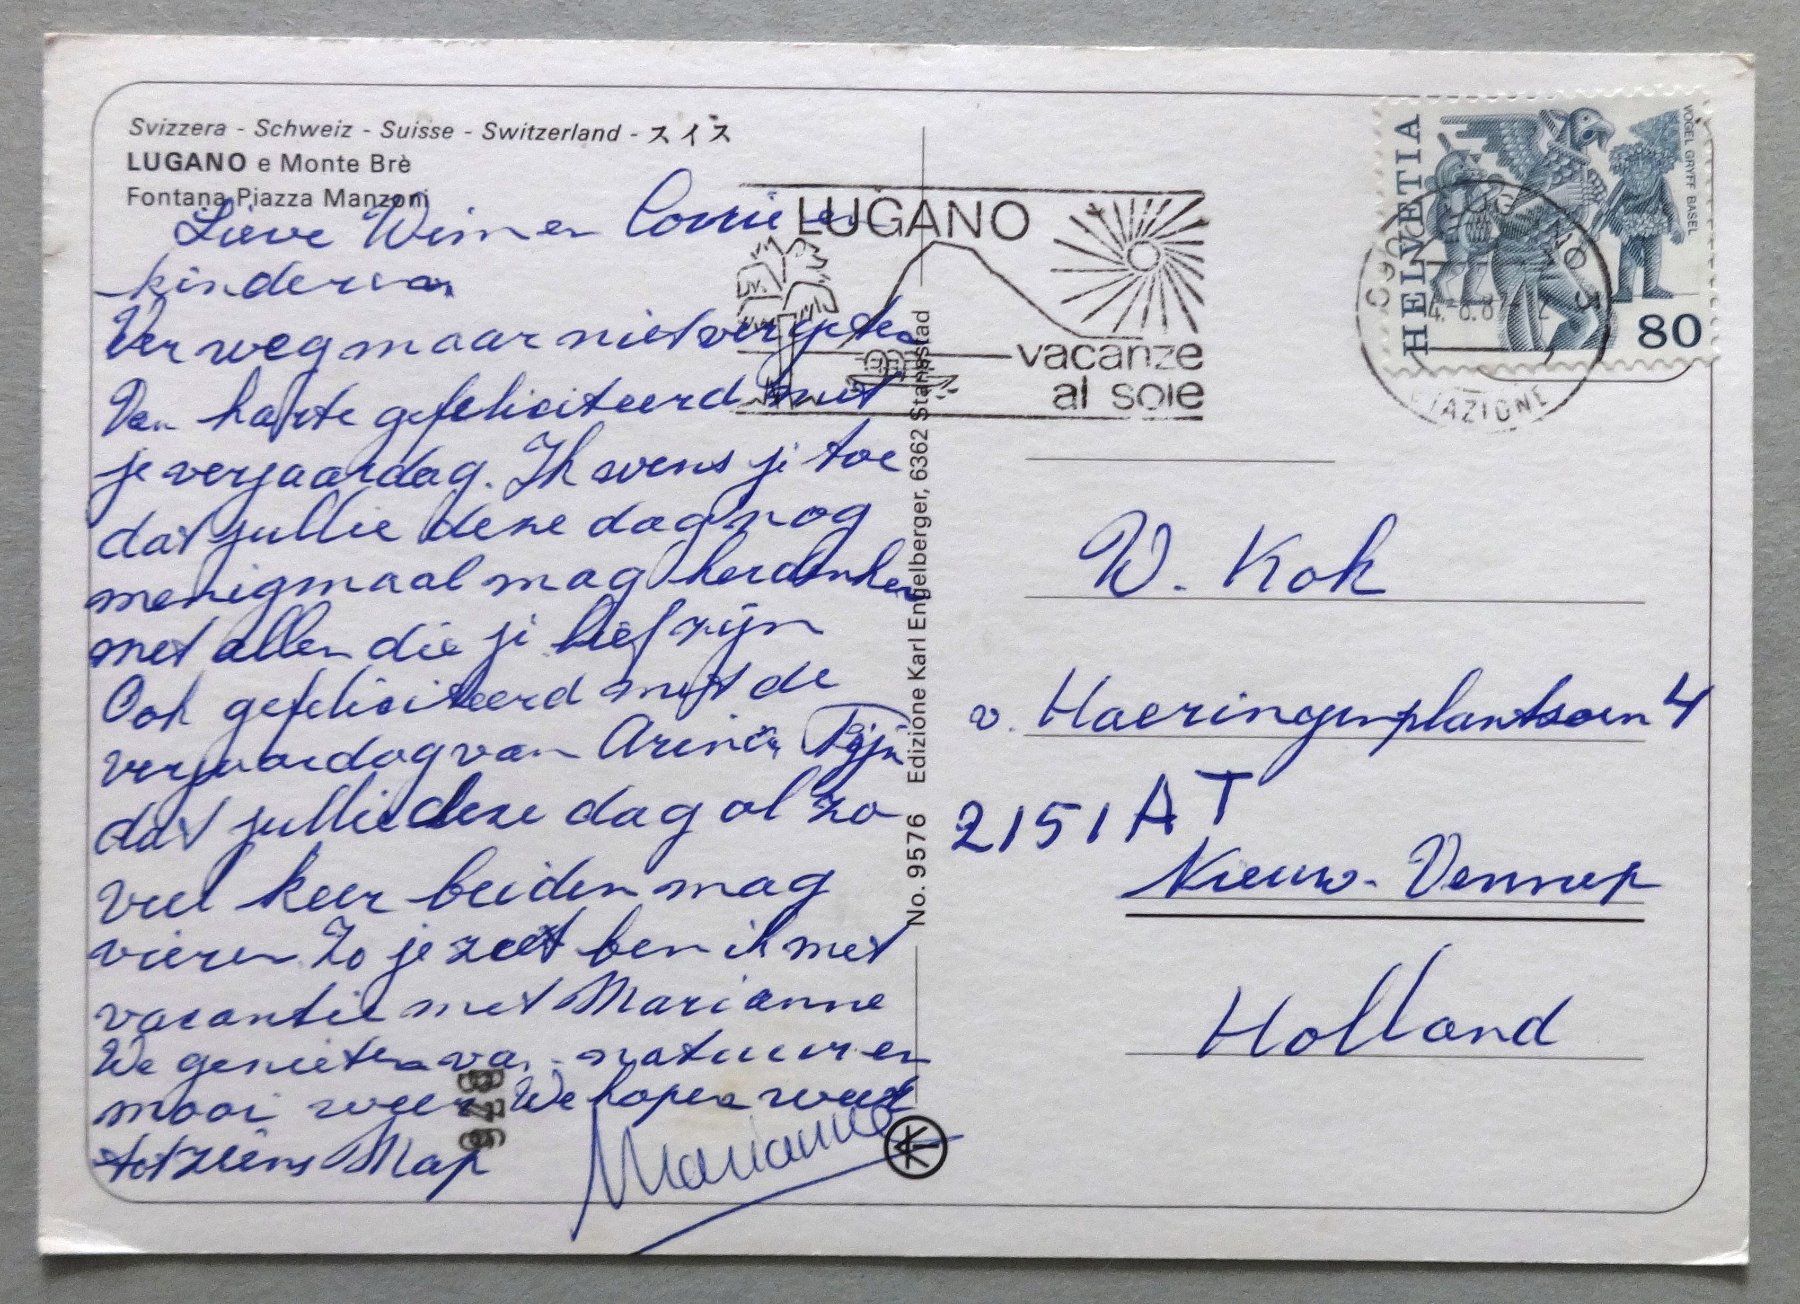 Svizzera - Schweiz - Suisse - Switzerland - スイス
LUGANO e Monte Brè
Fontana Piazza Manzoni
Lieve Wim en Corrie en
kinderen
Ver weg maar niet vergeten
Van harte gefeliciteerd met
je verjaardag. Ik wens ji toe
dat jullie deze dag nog
menigmaal mag herdenken
met allen die ji lief zijn
Ook gefeliciteerd met de
verjaardag van Arina, Fijn
dat jullie deze dag al zo
veel keer beiden mag
vieren Zo je ziet ben ik met
vacantie met Marianne
We genieten van natuur en
mooi weer We hopen weer
tot ziens Map
Marianne
9576
LUGANO
vacanze
al sole
No. 9576 Edizione Karl Engelberger, 6362 Stansstad
HELVETIA
VOGEL GRYFF BASEL
80
STAZIONE
W. Kok
v. Haeringenplantsoen 4
2151 AT
Nieuw-Vennep
Holland